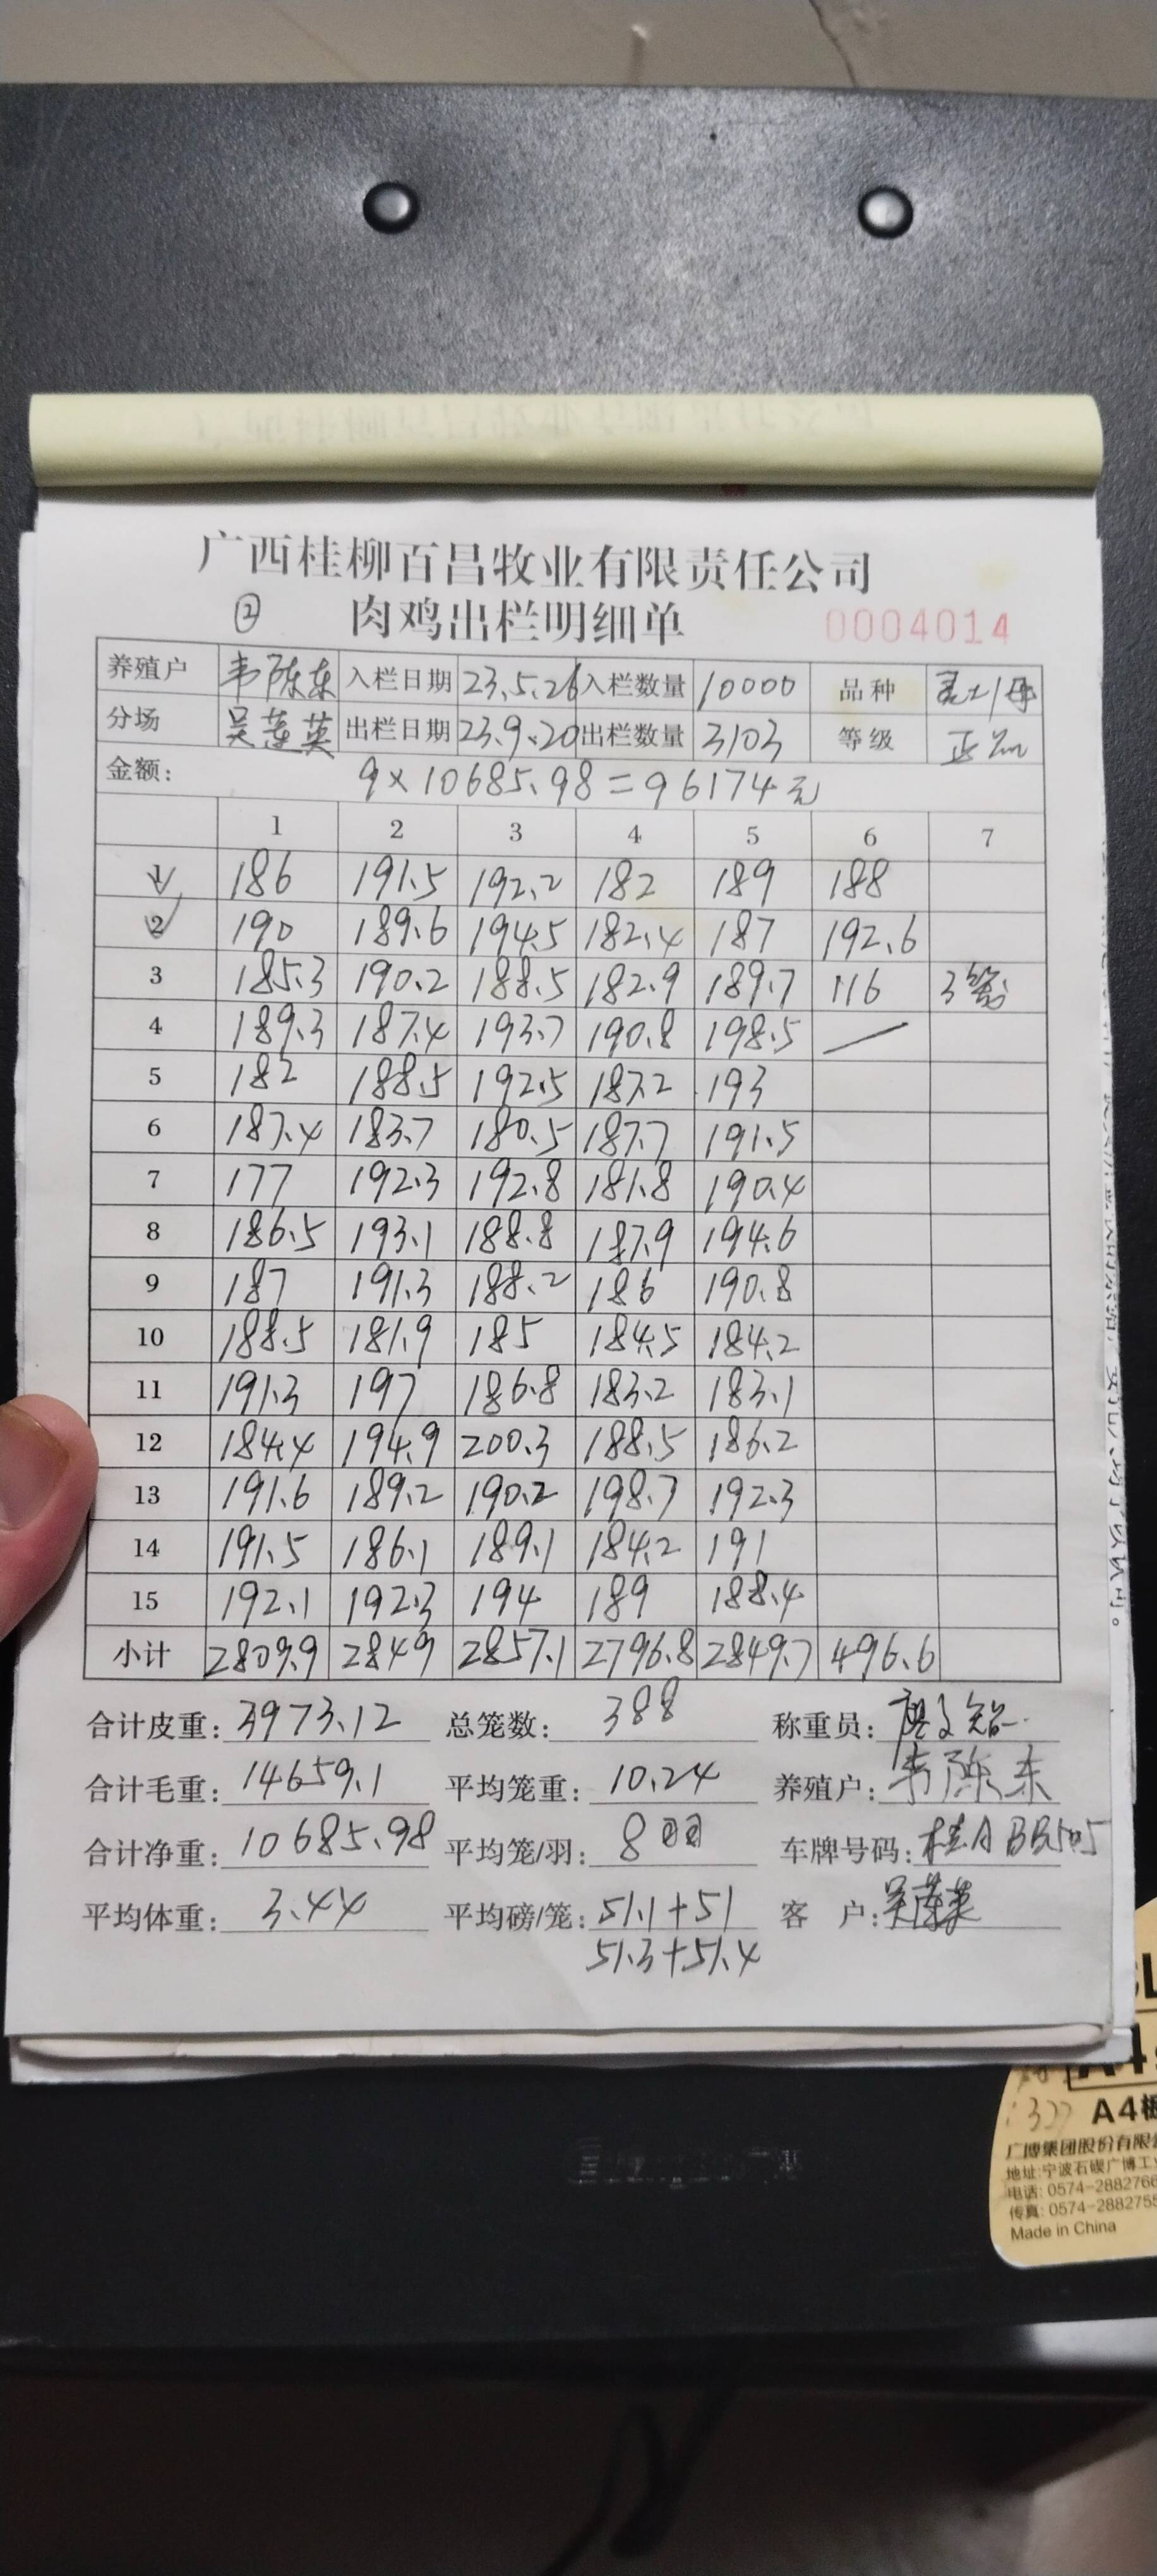 广西桂柳百昌牧业有限责任公司
② 肉鸡出栏明细单 0004014
养殖户 韦陈东 入栏日期 23.5.26 入栏数量 10000 品种
分场 吴莲英 出栏日期 23.9.20 出栏数量 3103 等级 正品
金额: 9×10685.98=96174元
1 2 3 4 5 6 7
1 186 191.5 192.2 182 189 188
2 190 189.6 194.5 182.4 187 192.6
3 185.3 190.2 188.5 182.9 189.7 116 3笼
4 189.3 187.4 193.7 190.8 198.5 /
5 182 188.5 192.5 187.2 193
6 187.4 183.7 180.5 187.7 191.5
7 177 192.3 192.8 181.8 190.4
8 186.5 193.1 188.8 187.9 194.6
9 187 191.3 188.2 186 190.8
10 188.5 181.9 185 184.5 184.2
11 191.3 197 186.8 183.2 183.1
12 184.4 194.9 200.3 188.5 186.2
13 191.6 189.2 190.2 198.7 192.3
14 191.5 186.1 189.1 184.2 191
15 192.1 192.3 194 189 188.4
小计 2809.9 2849 2857.1 2796.8 2849.7 496.6
合计皮重: 3973.12 总笼数: 388 称重员:
合计毛重: 14659.1 平均笼重: 10.24 养殖户: 韦陈东
合计净重: 10685.98 平均笼/羽: 8 车牌号码: 桂ABB505
平均体重: 3.44 平均磅/笼: 51.1+51 客 户: 吴莲英
51.3+51.4
A4
广博集团股份有限
地址:宁波石碶广博工
电话: 0574-2882766
传真: 0574-2882755
Made in China